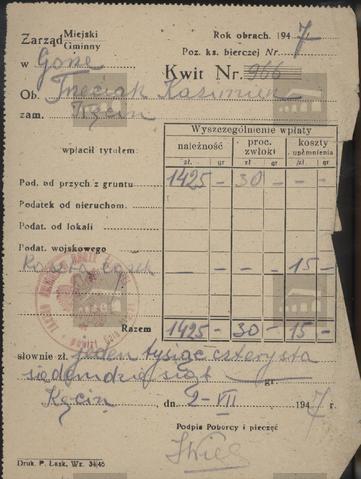 Zarząd Miejski
Gminny
Rok obrach. 1947
Poz. ks. bierczej Nr.
w
Kwit Nr. 966
Ob. Trzeciak Kazimierz
zam. Kęcin
Wyszczególnienie wpłaty
wpłacił tytułem:
należność
proc. zwłoki
koszty upomnienia
zł. gr zł gr zł. gr
Pod. od przych z gruntu 1425 - 30 - - -
Podatek od nieruchom.
Podat. od lokali
Podat. wojskowego
- - 15 -
Razem 1425 - 30 - 15 -
słownie zł. jeden tysiąc czterysta
siedemdziesiąt gr.
Kęcin dn. 2-VII 1947 r.
Podpis Poborcy i pieczęć
Druk. P. Łask, Wz. 34/45